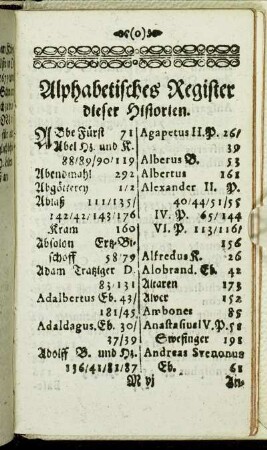 (0)
Alphabetisches Register
dieser Historien.
ABbe Fürst 71
Abel Hz. und K.
88/89/90/119
Abendmahl 292
Abgötterey 1/2
Ablaß 111/135/
142/42/143/176
Kram 160
Absolon Ertz-Bi-
schoff 58/79
Adam Tratziger D.
83/131
Adalbertus Eb. 43/
181/45
Adaldagus. Eb. 30/
37/39
Adolff B. und Hz.
136/41/81/87
Agapetus II. P. 26/
39
Alberus B. 53
Albertus 161
Alexander II. P.
40/44/51/55
IV. P. 65/144
VI. P. 113/116/
156
Alfredus K. 26
Alobrand. Eb. 42
Altaren 173
Alver 152
Amboner 85
Anastasius IV. P. 58
Swefinger 198
Andreas Svenonus
Eb. 61
M vj
An-